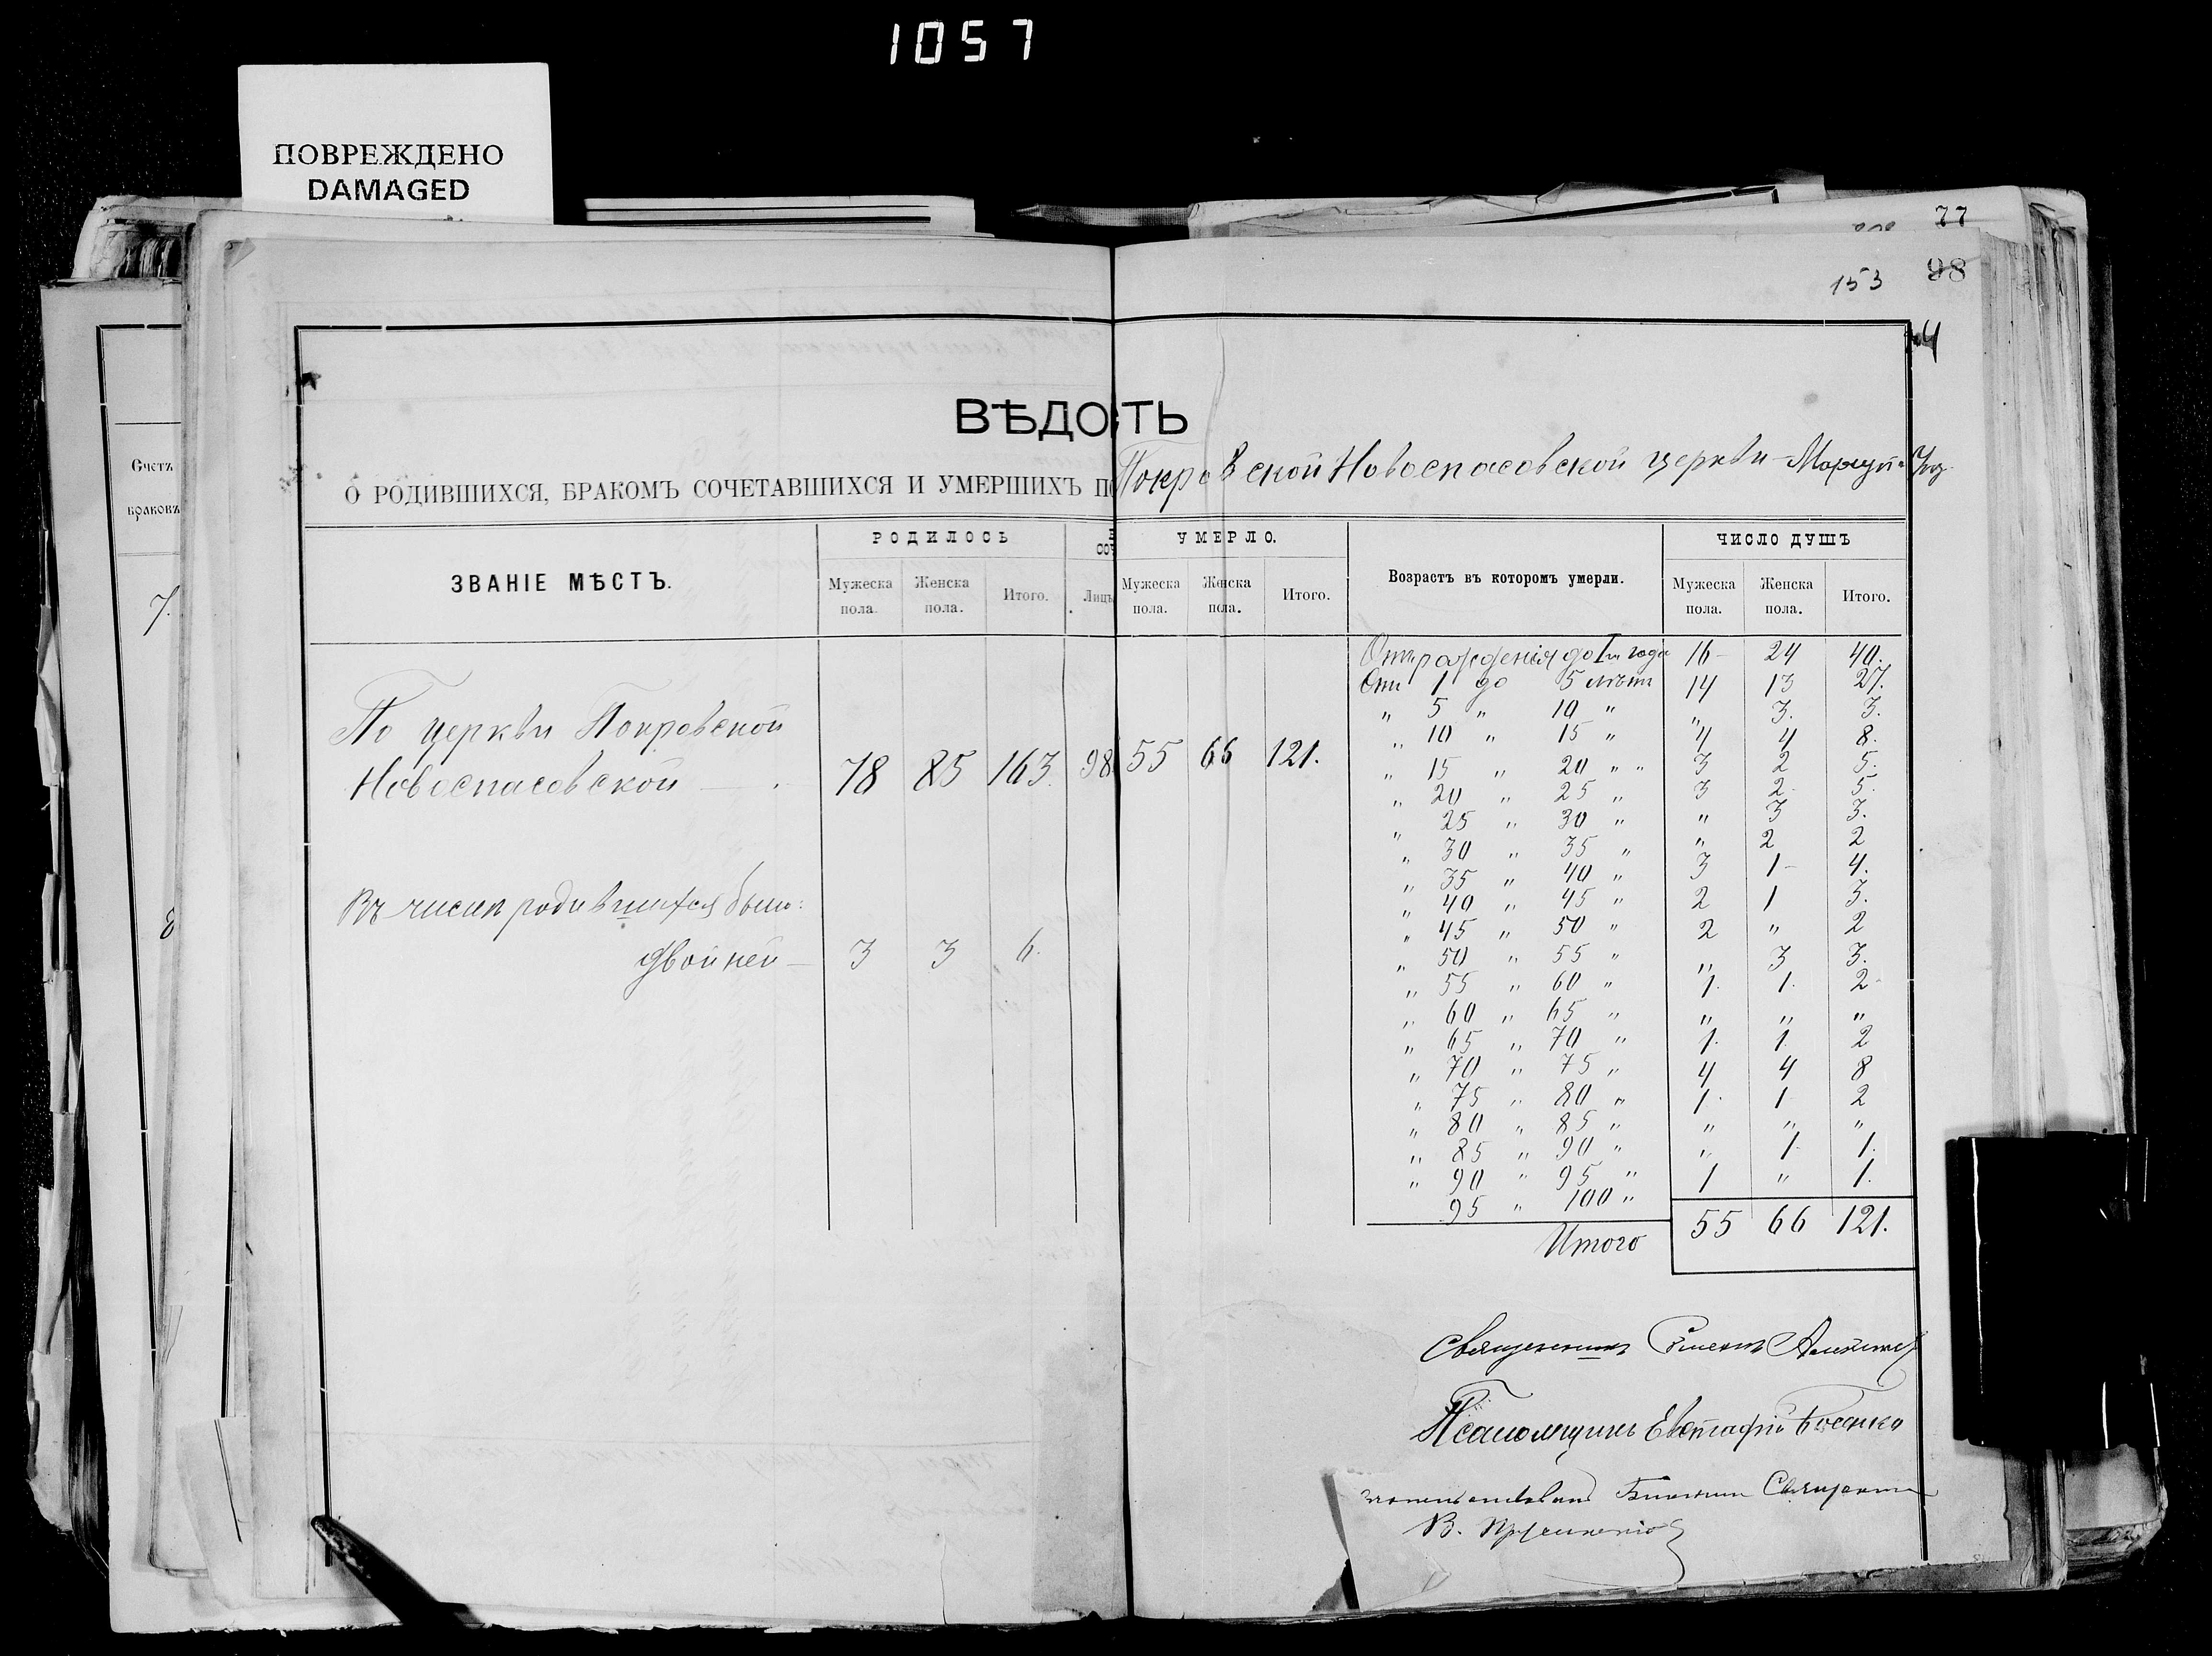 1057
ПОВРЕЖДЕНО
DAMAGED
77
153 98
Счетъ
браковъ
7.
8
ВѢДО ТЬ
О РОДИВШИХСЯ, БРАКОМЪ СОЧЕТАВШИХСЯ И УМЕРШИХЪ П Покровской Новоспасовской церкви
ЗВАНІЕ МѢСТЪ.
РОДИЛОСЬ
Мужеска пола. Женска пола. Итого.
Лицъ
УМЕРЛО.
Мужеска пола. Женска пола. Итого.
Возрастъ въ которомъ умерли.
ЧИСЛО ДУШЪ
Мужеска пола. Женска пола. Итого.
По церкви Покровской
Новоспасовской — 78 85 163. 98 55 66 121.
Въ числѣ родившихся было:
двойней — 3 3 6.
Отъ рожденія до 1го года 16 - 24 40.
Отъ 1 до 5 лѣтъ 14 13 27.
" 5 " 10 " " 3. 3.
" 10 " 15 " 4 4 8.
" 15 " 20 " " 3 2 5.
" 20 " 25 " 3 2. 5.
25 " 30 " " 3 3.
" 30 " 35 " " 2 2
" 35 " 40 " 3 1 - 4.
" 40 " 45 " 2 1 3.
" 45 " 50 " 2 " 2
" 50 " 55 " " 3 3.
" 55 " 60 " 1. 1. 2
" 60 " 65 " " " "
" 65 " 70 " 1. 1. 2
" 70 " 75 " 4 4 8
" 75 " 80 " 1. 1 2
" 80 " 85 " " " "
" 85 " 90 " " 1. 1.
" 90 " 95 " 1 " 1.
95 " 100 "
Итого 55 66 121.
Священникъ
Псаломщикъ Евстафій
В.